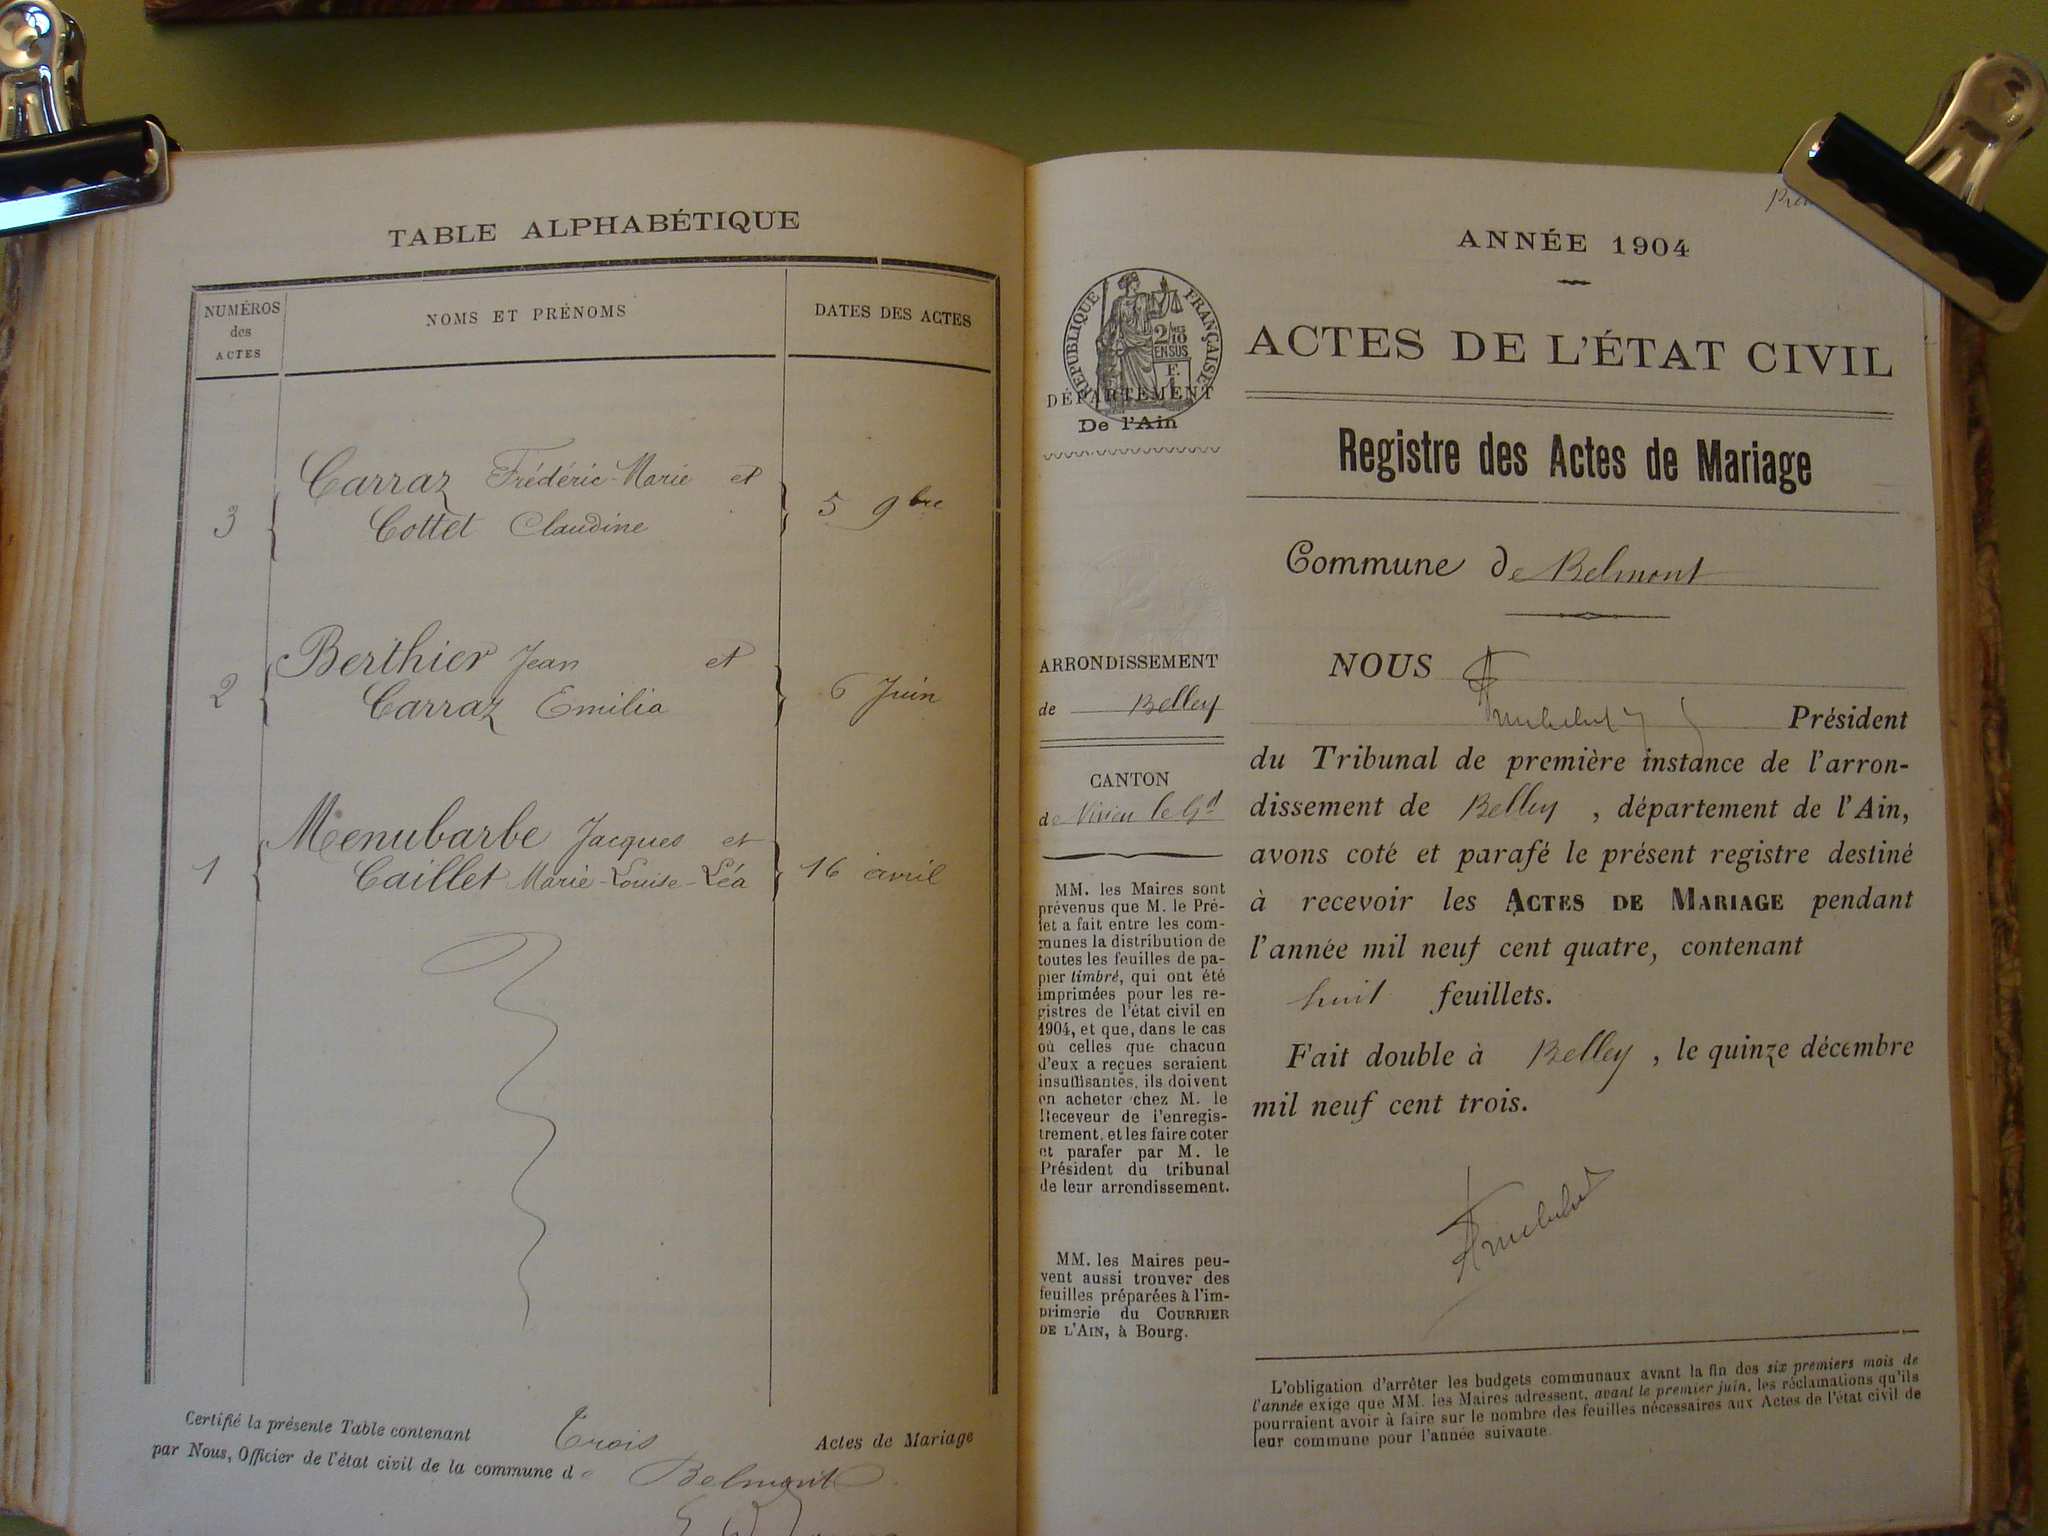 TABLE ALPHABÉTIQUE
NUMÉROS des ACTES
NOMS ET PRÉNOMS
DATES DES ACTES
3 Carraz Frédéric-Marie et
Cottet Claudine
5 9bre
2 Berthier Jean et
Carraz Emilia
6 Juin
1 Menubarbe Jacques et
Caillet Marie-Louise-Léa
16 avril
Certifié la présente Table contenant Trois Actes de Mariage
par Nous, Officier de l'état civil de la commune de Belmont
ANNÉE 1904
RÉPUBLIQUE FRANÇAISE
2/10
EN SUS
DÉPARTEMENT
De l'Ain
ACTES DE L'ÉTAT CIVIL
Registre des Actes de Mariage
Commune de Belmont
ARRONDISSEMENT
de Belley
CANTON
de Virieu le Gd
MM. les Maires sont
prévenus que M. le Pré-
fet a fait entre les com-
munes la distribution de
toutes les feuilles de pa-
pier timbré, qui ont été
imprimées pour les re-
gistres de l'état civil en
1904, et que, dans le cas
où celles que chacun
d'eux a reçues seraient
insuffisantes, ils doivent
en acheter chez M. le
Receveur de l'enregis-
trement, et les faire coter
et parafer par M. le
Président du tribunal
de leur arrondissement.
MM. les Maires peu-
vent aussi trouver des
feuilles préparées à l'im-
primerie du COURRIER
DE L'AIN, à Bourg.
NOUS
Président
du Tribunal de première instance de l'arron-
dissement de Belley, département de l'Ain,
avons coté et parafé le présent registre destiné
à recevoir les ACTES DE MARIAGE pendant
l'année mil neuf cent quatre, contenant
huit feuillets.
Fait double à Belley, le quinze décembre
mil neuf cent trois.
L'obligation d'arrêter les budgets communaux avant la fin des six premiers mois de
l'année exige que MM. les Maires adressent, avant le premier juin, les réclamations qu'ils
pourraient avoir à faire sur le nombre des feuilles nécessaires aux Actes de l'état civil de
leur commune pour l'année suivante.